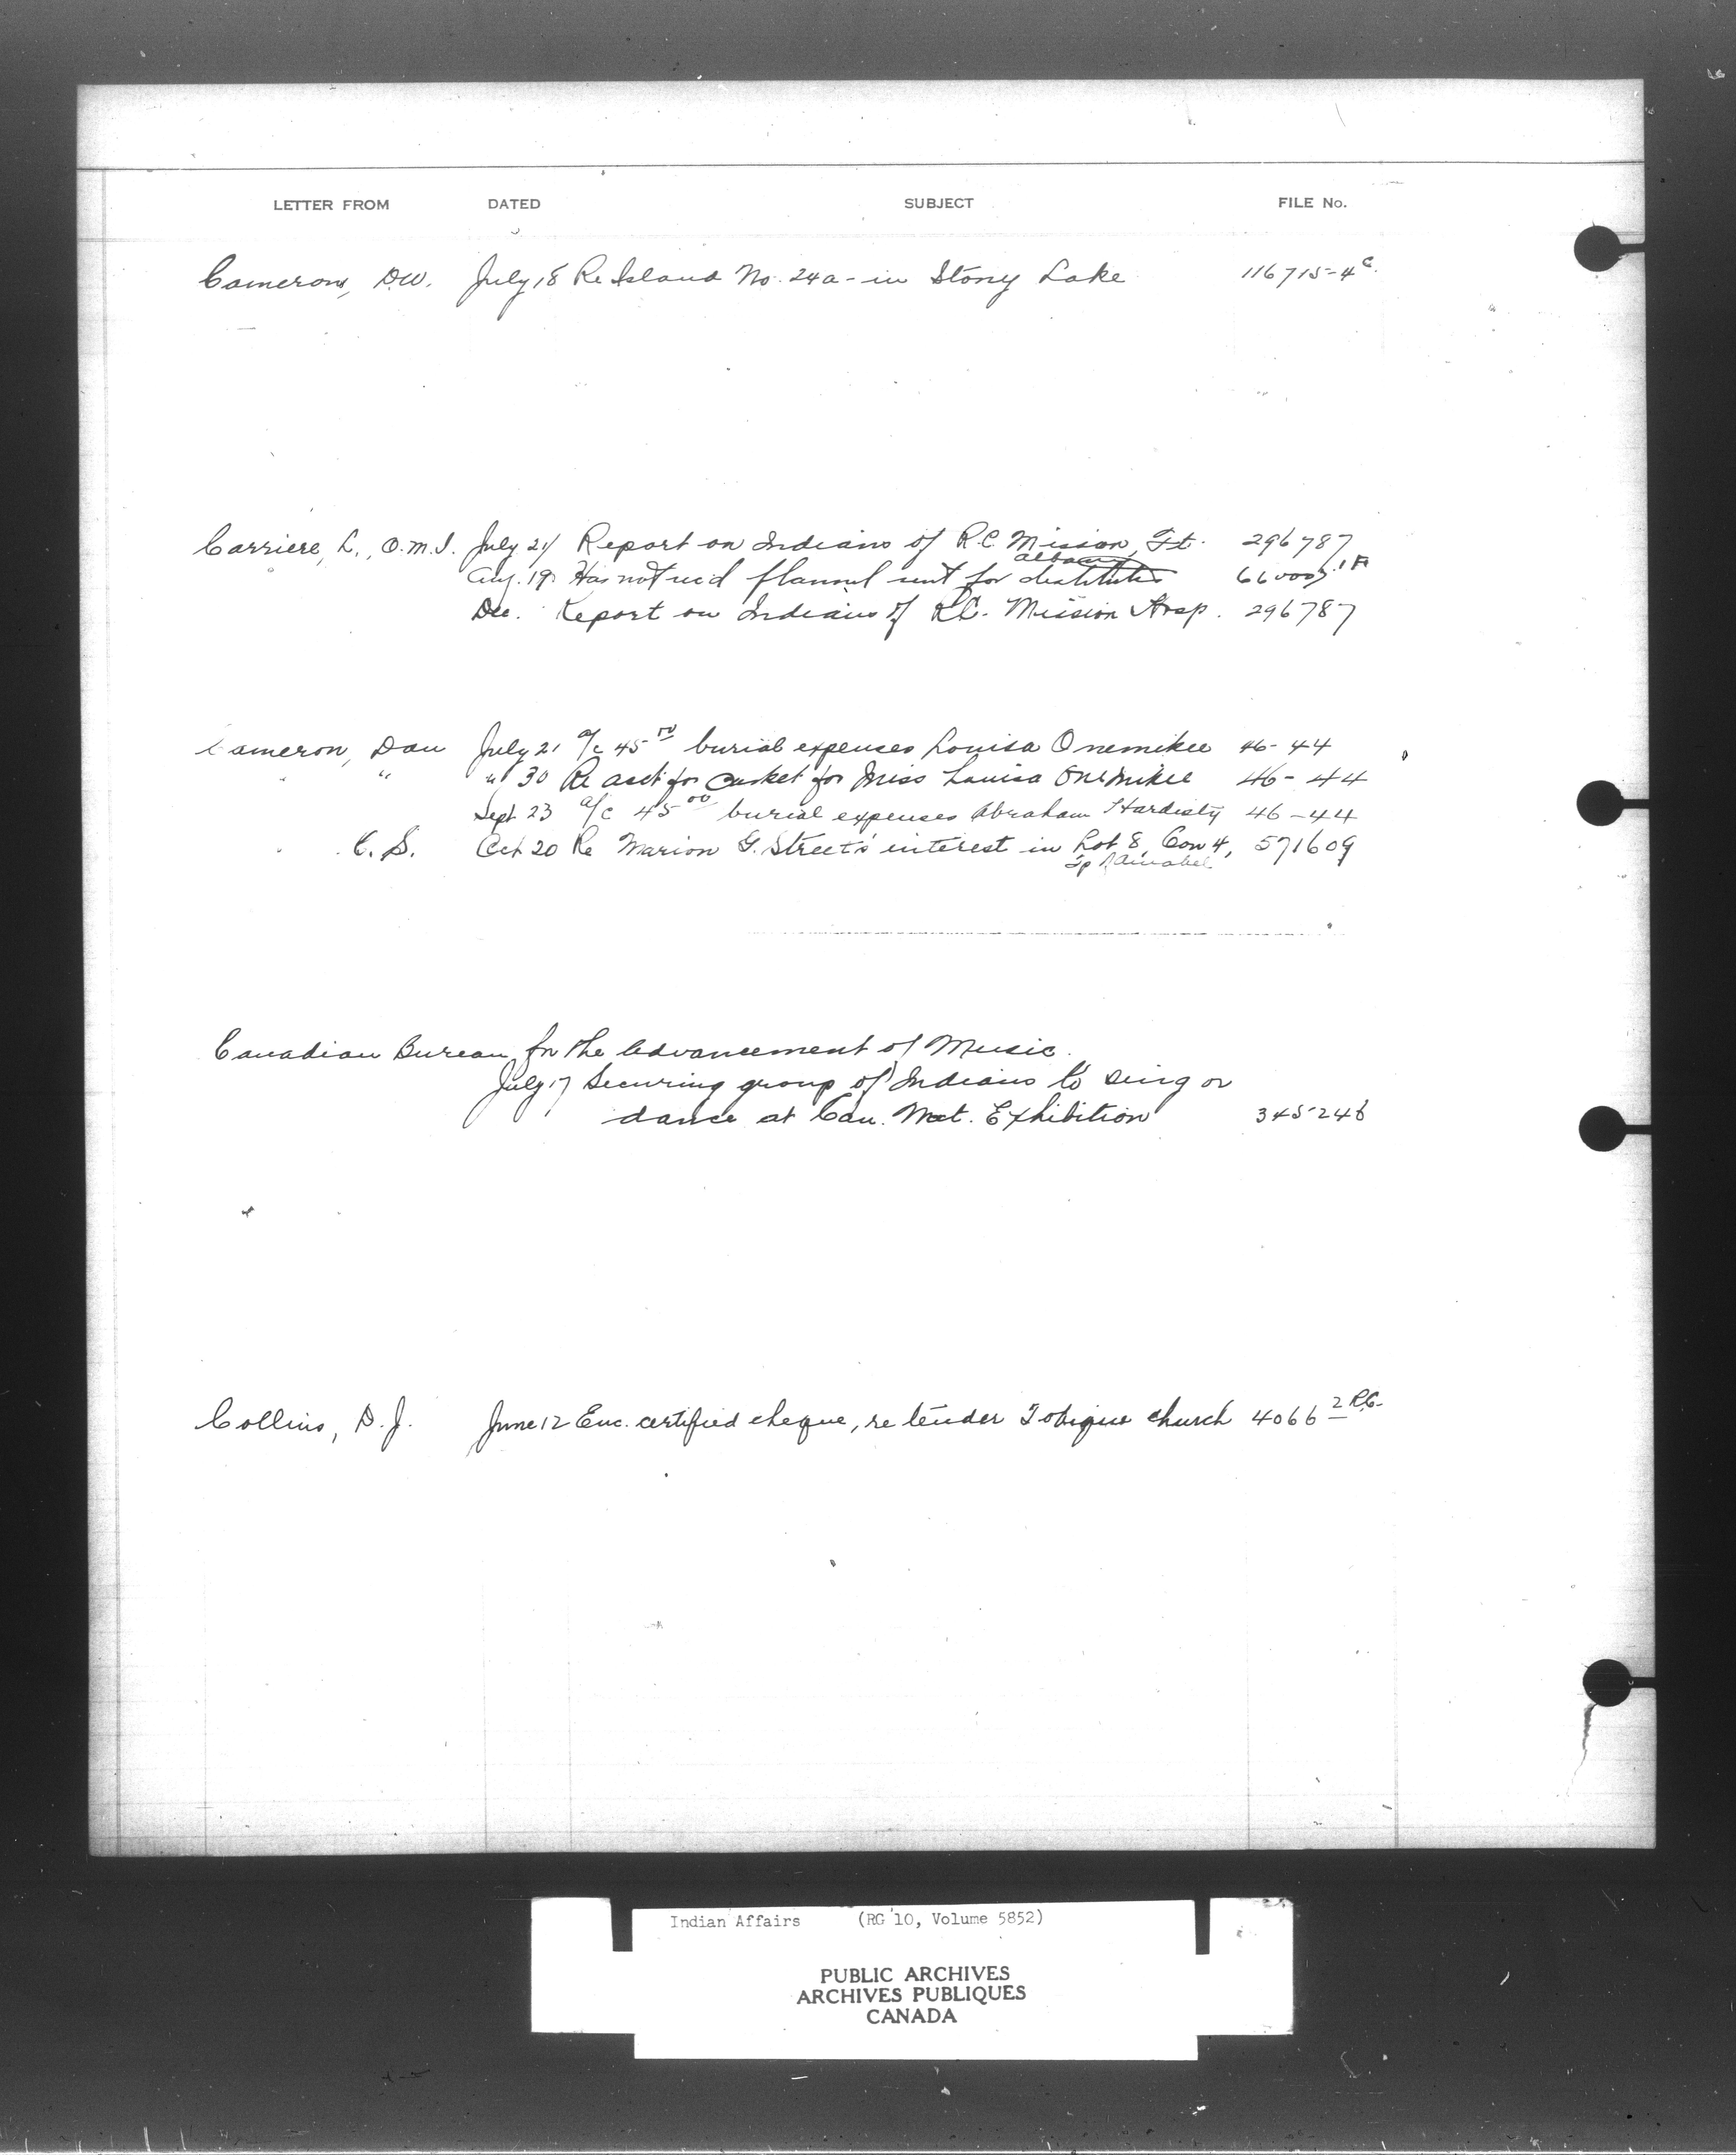 LETTER FROM DATED SUBJECT FILE No.
Cameron, D.W. July 18 Re Island No. 24a - in Stony Lake 116715-4C.
Carriere, L., O.M.I. July 21 Report on Indians of R.C. Mission, Ft. 296787
Albany
Aug. 19 Has not rec'd flannel sent for destitute
Dec. Report on Indians of R.C. Mission Hosp. 296787
Cameron, Dan July 21 a/c 45.00 burial expenses Louisa Onemikee 46-44
" " 30 Re acct for casket for Miss Louisa Onemikee 46-44
Sept 23 a/c 45.00 burial expenses Abraham Hardisty 46-44
C. S. Oct 20 Re Marion G. Street's interest in Lot 8, Con 4, 571609
Tp Amabel
Canadian Bureau for the Advancement of Music.
July 17 Securing group of Indians to sing or
dance at Can. Nat. Exhibition 345246
Collins, D. J. June 12 Enc. certified cheque, re tender Tobique church 4066 2 R.C.
Indian Affairs (RG 10, Volume 5852)
PUBLIC ARCHIVES
ARCHIVES PUBLIQUES
CANADA